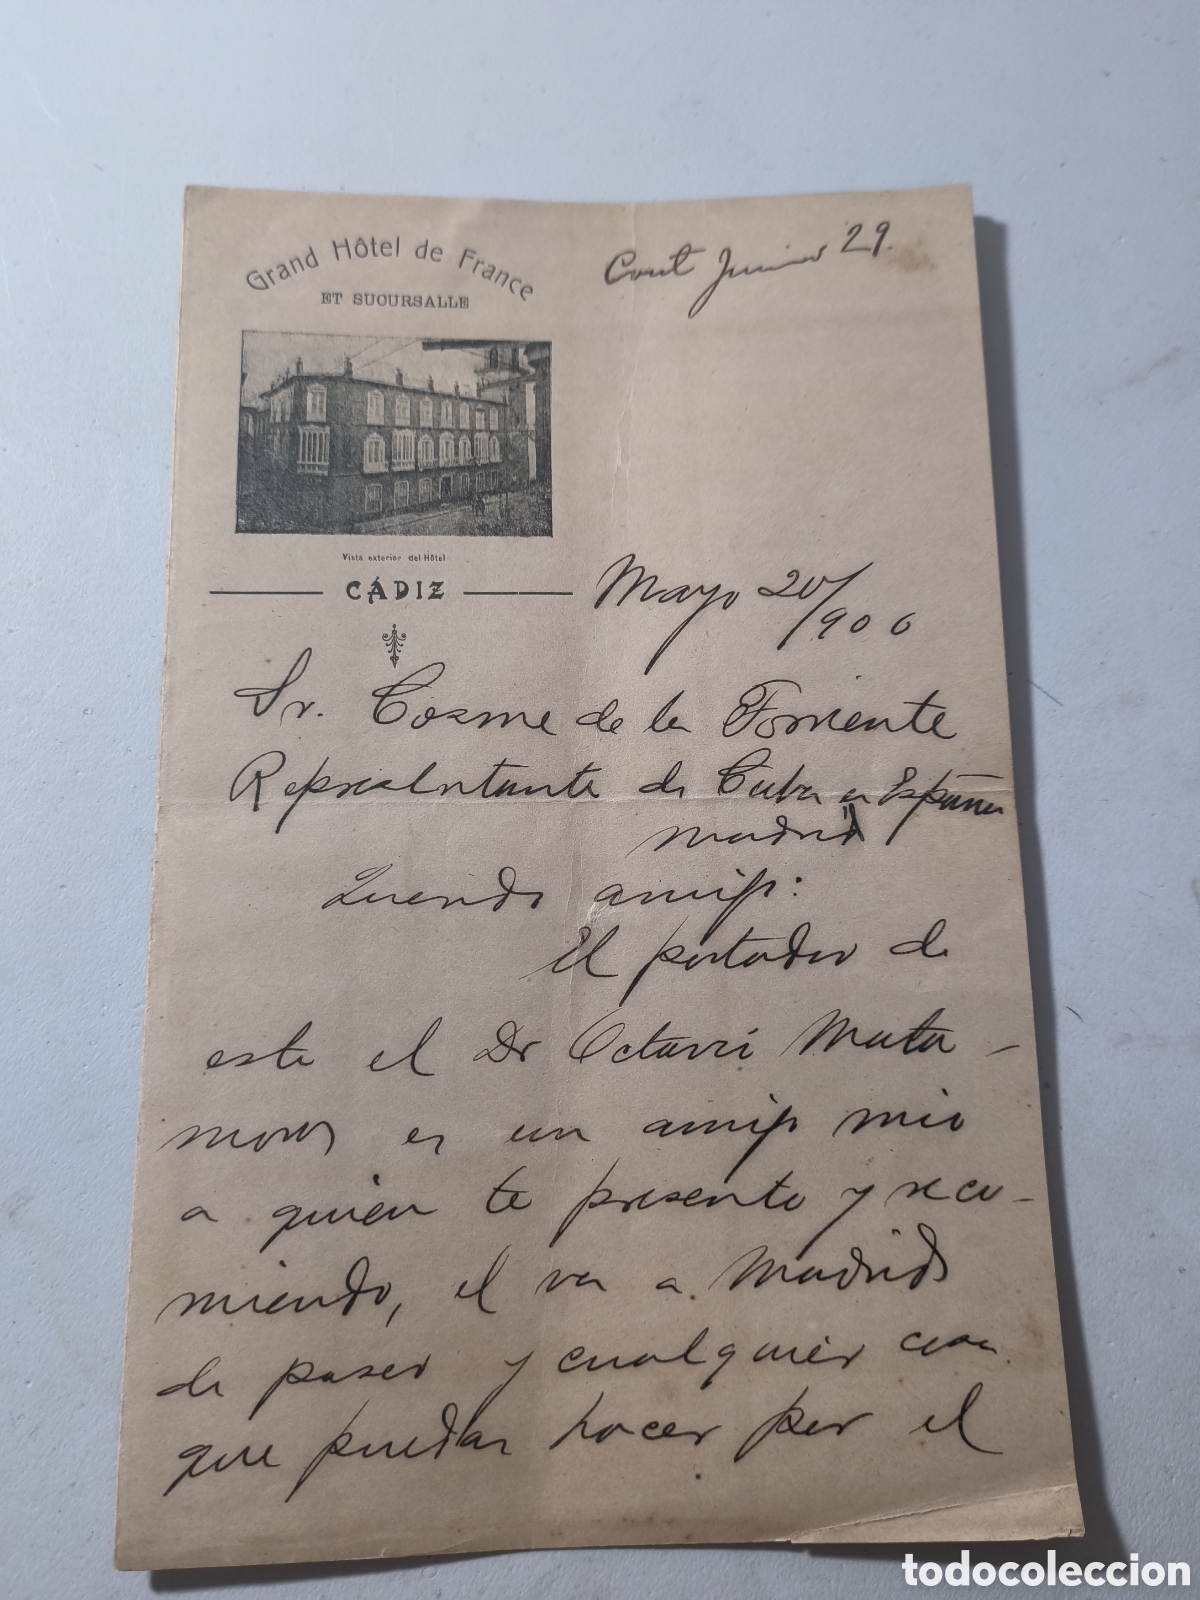 Grand Hôtel de France
ET SUCURSALLE
Cont Junio 29.
Vista exterior del Hôtel
CÁDIZ
Mayo 20/906
Sr. Cosme de la Torriente
Representante de Cuba en España
Madrid
Querido amigo:
El portador de
este el Dr Octavio Mata-
moros es un amigo mio
a quien te presento y reco-
miendo, el va a Madrid
de paseo y cualquier cosa
que puedas hacer por el
todocoleccion